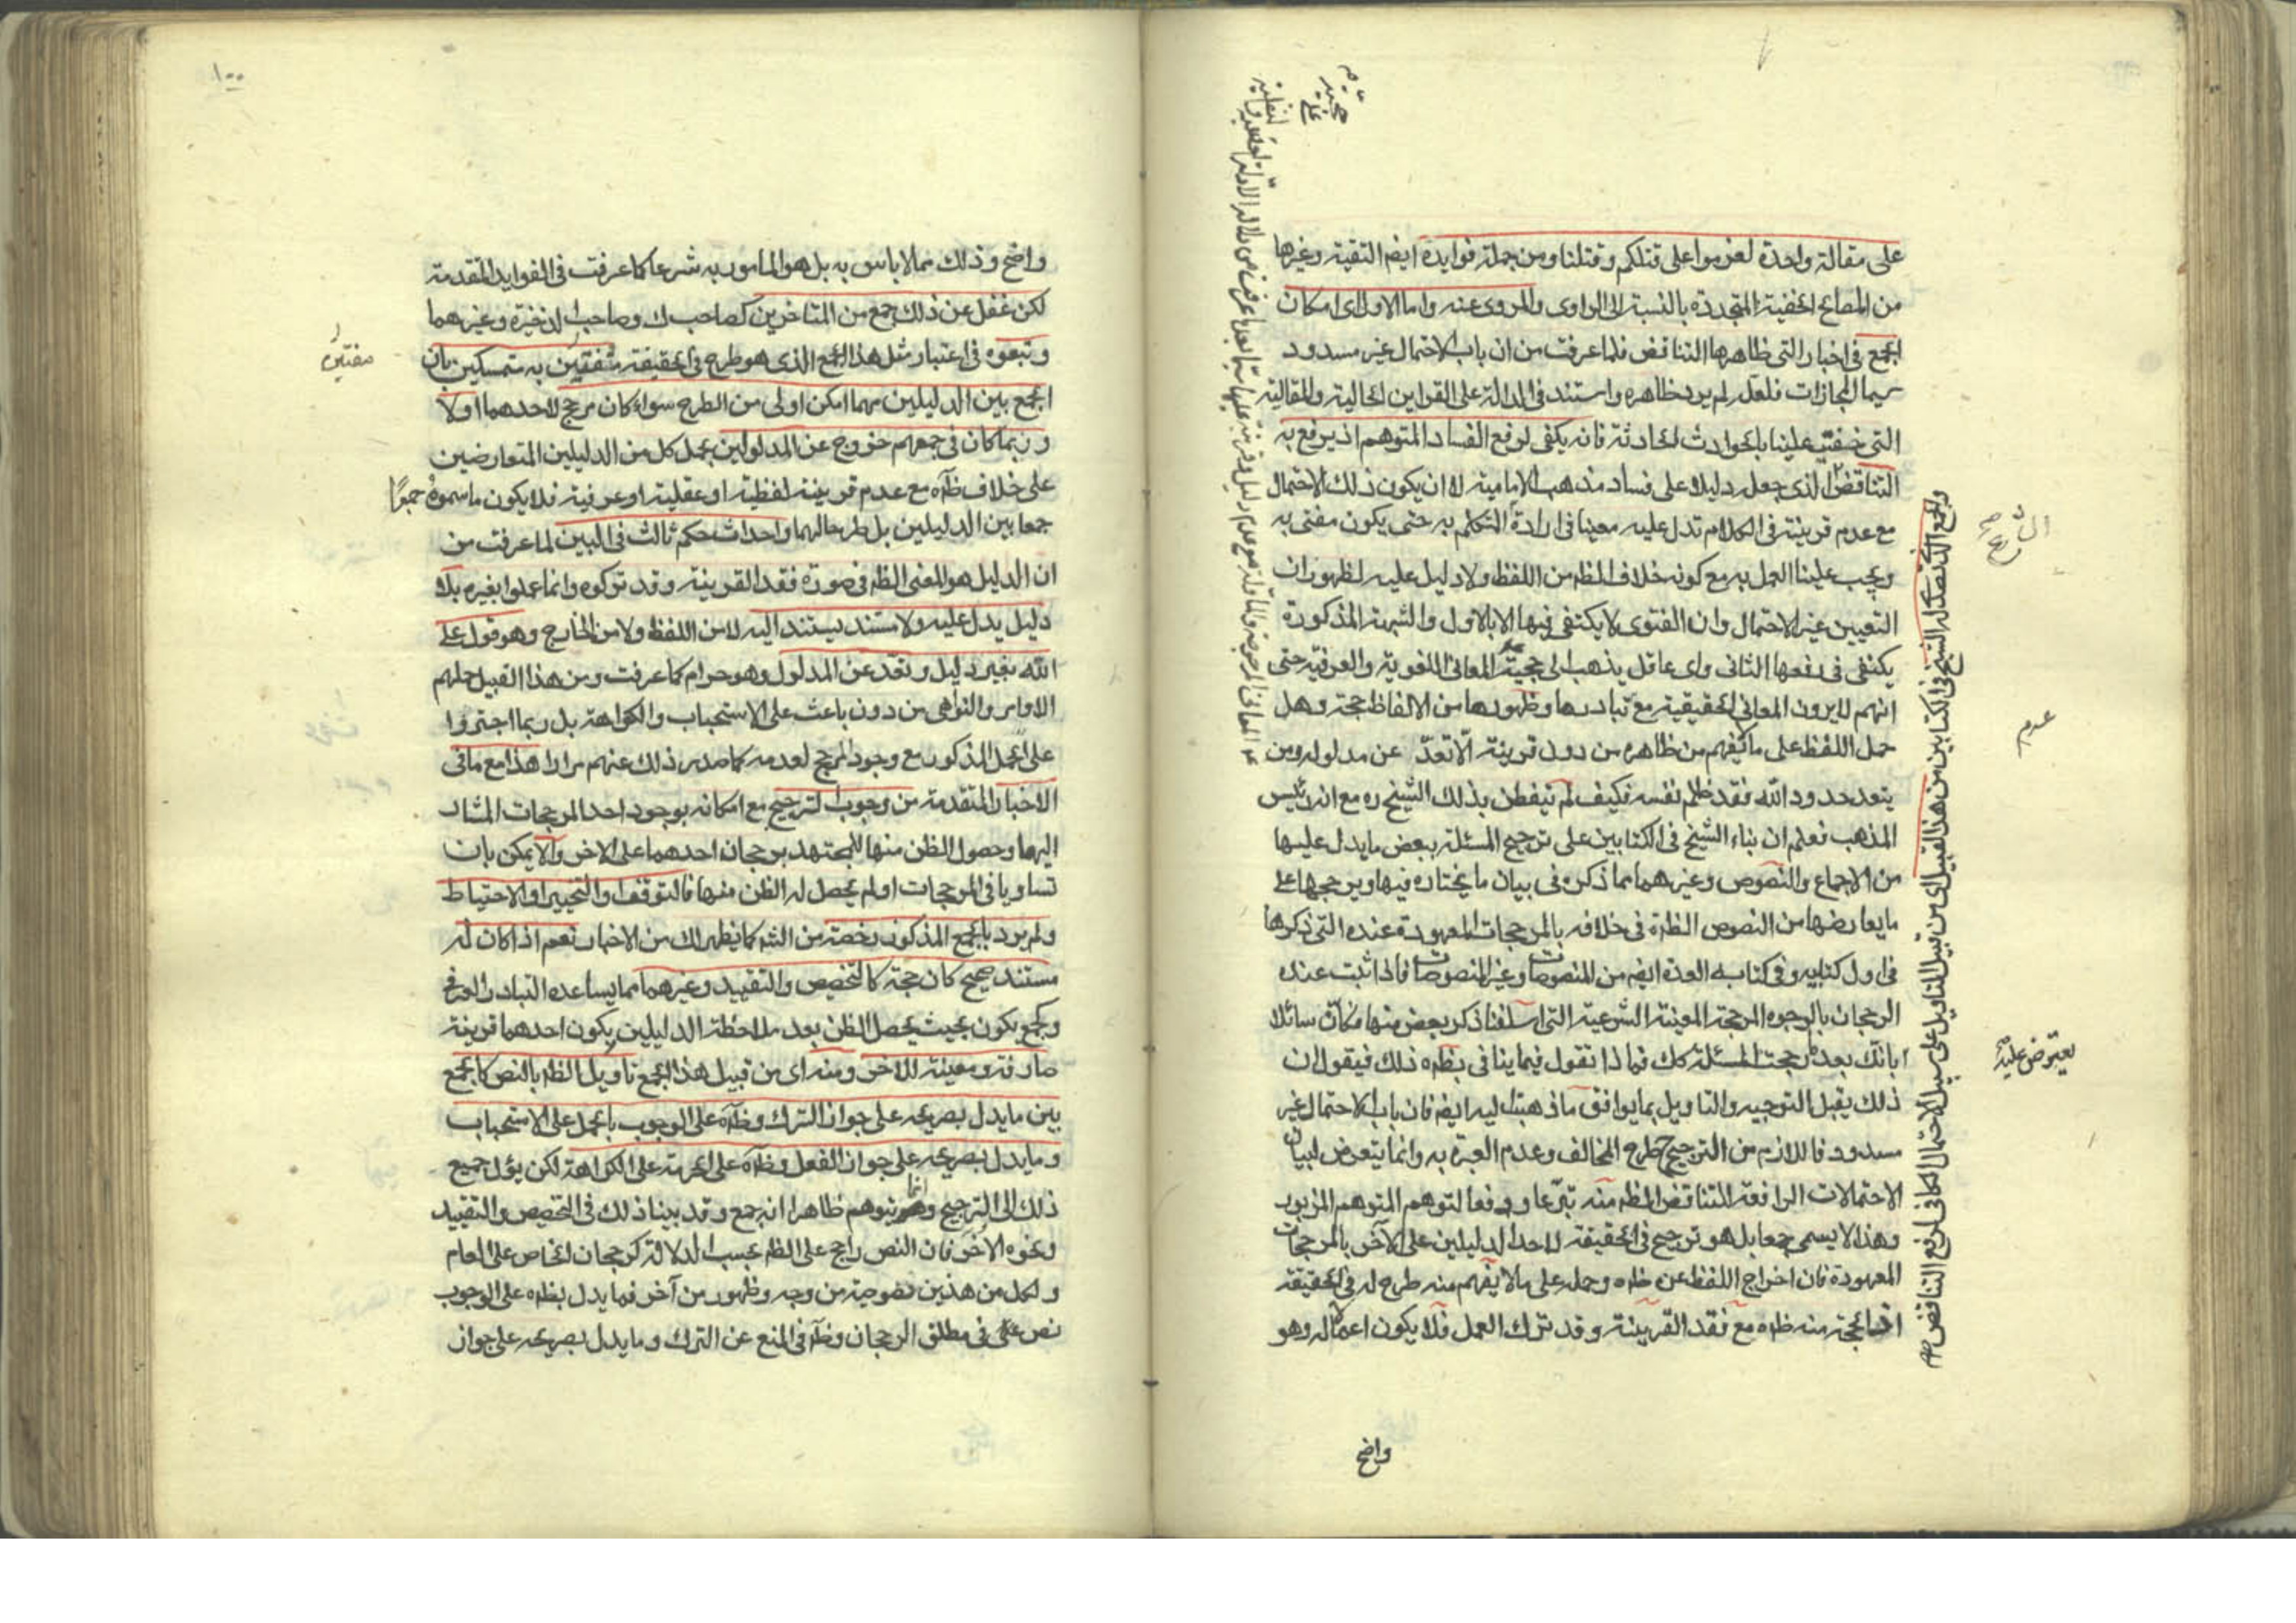 على مقالة واحدة لعزموا على قتلكم وقتلنا ومن جملة فوايده ايضم التقية وغيرها
من المصالح الخفية المتجددة بالنسبة الى الراوى والمروى عنه واما الاول اى امكان
الجمع فى اخبار التى ظاهرها التناقض فلما عرفت من ان باب الاحتمال غير مسدود
سيما المجازات فلعله لم يرد ظاهره واستند فى الدلالة على القراين الحالية والمقالية
التى خفيت علينا بالحوادث الحادثة فانه يكفى لرفع الفساد المتوهم اذ يرفع به
التناقض الذى جعل دليلا على فساد مذهب الامامية لا ان يكون ذلك الاحتمال
مع عدم قرينة فى الكلام تدل عليه معينا فى ارادة المتكلم به حتى يكون مفتى به
ويجب علينا العمل به مع كونه خلاف الظه من اللفظ ولا دليل عليه لظهور ان
التعيين غير الاحتمال وان الفتوى لا يكتفى فيها الا بالاول والشبهة المذكورة
يكتفى فى دفعها الثانى واى عاقل يذهب الى حجية المعانى اللغوية والعرفية حتى
انهم لا يرون المعانى الحقيقية مع تبادرها وظهورها من الالفاظ حجة وهل
حمل اللفظ على ما يفهم من ظاهره من دون قرينة الا تعد عن مدلوله ومن
يتعد حدود الله فقد ظلم نفسه فكيف لم يتفطن بذلك الشيخ ره مع انه رئيس
المذهب فعلم ان بناء الشيخ فى الكتابين على ترجيح المسئلة ببعض ما يدل عليها
من الاجماع والنصوص وغيرهما مما ذكره فى بيان ما يختاره فيها ويرجحها على
ما يعارضها من النصوص الظاهرة فى خلافه بالمرجحات المعهودة عنده التى ذكرها
فى اول كتابيه وفى كتابه العدة ايضم من المنصوصات وغير المنصوصات فاذا ثبت عنده
الرجحان بالوجوه المرجحة المعينة الشرعية التى اسلفنا ذكر بعض منها فكأن سائلا
بانك بعد ما رجحت المسئلة كك فماذا تقول فيما ينافى بظه ذلك فيقول ان
ذلك يقبل التوجيه والتاويل بما يوافق ما ذهبت اليه ايضم فان باب الاحتمال غير
مسدود فاللازم من الترجيح طرح المخالف وعدم العبرة به وانما يتعرض لبيان
الاحتمالات الرافعة للتناقض الظه منه تبرعا ودفعا لتوهم المتوهم المزبور
وهذا لا يسمى جمعا بل هو ترجيح فى الحقيقة لاحد الدليلين على الآخر بالمرجحات
المعهودة فان اخراج اللفظ عن ظه وحمله على ما لا يفهم منه طرح له فى الحقيقة
اذ الحجة منه ظه مع فقد القرينة وقد ترك العمل فلا يكون اعمالا له وهو
واضح
والجمع الذى تصدى له الشيخ فى الكتابين من هذا القبيل اى من قبيل التاويل على سبيل الاحتمال الكافى لرفع التناقض
الشارح
عدم
يعترض عليه
١٠٠
واضح وذلك مما لا باس به بل هو المامور به شرعا كما عرفت فى الفوايد المتقدمة
لكن غفل عن ذلك جمع من المتاخرين كصاحب ك وصاحب الذخيرة وغيرهما
وتبعوه فى اعتبار مثل هذا الجمع الذى هو طرح فى الحقيقة متفقين به متمسكين بان
الجمع بين الدليلين مهما امكن اولى من الطرح سواء كان مرجح لاحدهما او لا
وربما كان فى جمعهم خروج عن المدلولين بحمل كل من الدليلين المتعارضين
على خلاف ظاهره مع عدم قرينة لفظية او عقلية او عرفية فلا يكون ما سموه جمعا
جمعا بين الدليلين بل طرحا لهما واحداث حكم ثالث فى البين لما عرفت من
ان الدليل هو المعنى الظه فى صورة فقد القرينة وقد تركوه وانما عملوا بغيره بلا
دليل يدل عليه ولا مستند يستند اليه لا من اللفظ ولا من الخارج وهو قول على
الله بغير دليل وتعد عن المدلول وهو حرام كما عرفت ومن هذا القبيل حملهم
الاوامر والنواهى من دون باعث على الاستحباب والكراهة بل ربما اجتروا
على الحمل المذكور مع وجود المرجح لعدمه كما صدر ذلك عنهم مرارا هذا مع ما فى
الاخبار المتقدمة من وجوب الترجيح مع امكانه بوجود احد المرجحات المشار
اليها وحصول الظن منها للمجتهد برجحان احدهما على الاخر والا يمكن بان
تساويا فى المرجحات او لم يحصل له الظن منها فالتوقف او التخيير او الاحتياط
ولم يرد بالجمع المذكور رخصة من الشه كما يظهر لك من الاخبار نعم اذا كان له
مستند صحيح كان حجة كالتخصيص والتقييد وغيرهما مما يساعده التبادر العرفى
وكجمع يكون بحيث يحصل الظن بعد ملاحظة الدليلين بكون احدهما قرينة
صارفة ومعينة للاخر ومنه اى من قبيل هذا الجمع تاويل الظه بالنص كالجمع
بين ما يدل بصريحه على جواز الترك وظه على الوجوب بالحمل على الاستحباب
وما يدل بصريحه على جواز الفعل وظه على الحرمة على الكراهة لكن يؤل جميع
ذلك الى الترجيح وانما يتوهم ظاهرا انه جمع وقد بينا ذلك فى التخصيص والتقييد
ونحوه الاخر فان النص راجح على الظه بحسب الدلالة كرجحان الخاص على العام
ولكل من هذين نصوصية من وجه وظهور من آخر فما يدل بظه على الوجوب
نص فى مطلق الرجحان وظه فى المنع عن الترك وما يدل بصريحه على جواز